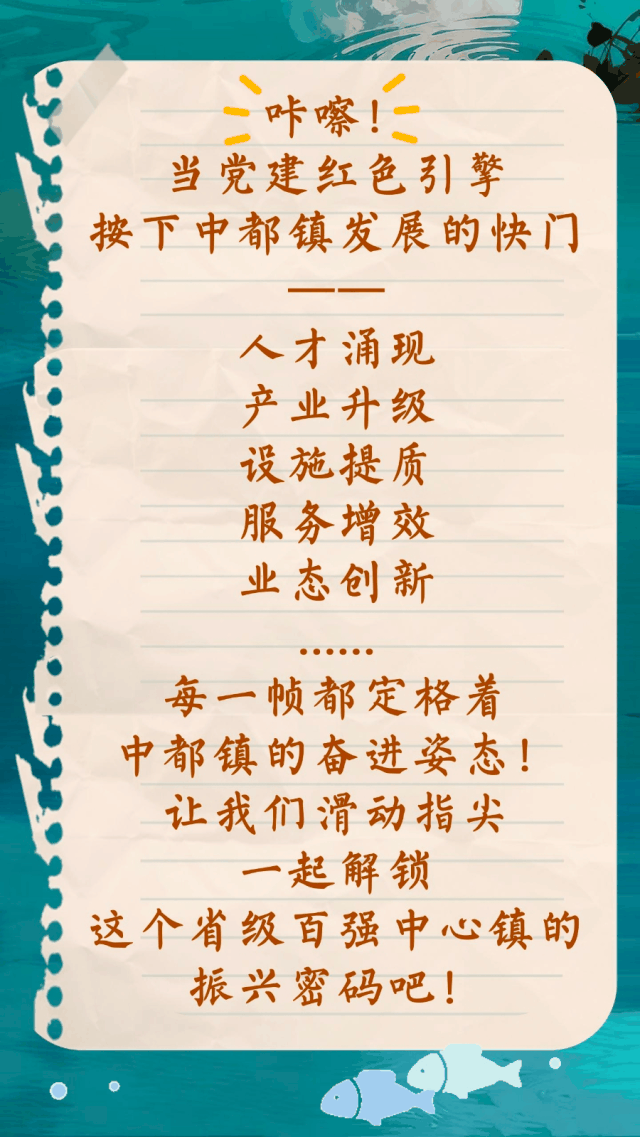 咔嚓！
当党建红色引擎
按下中都镇发展的快门
——
人才涌现
产业升级
设施提质
服务增效
业态创新
......
每一帧都定格着
中都镇的奋进姿态！
让我们滑动指尖
一起解锁
这个省级百强中心镇的
振兴密码吧！